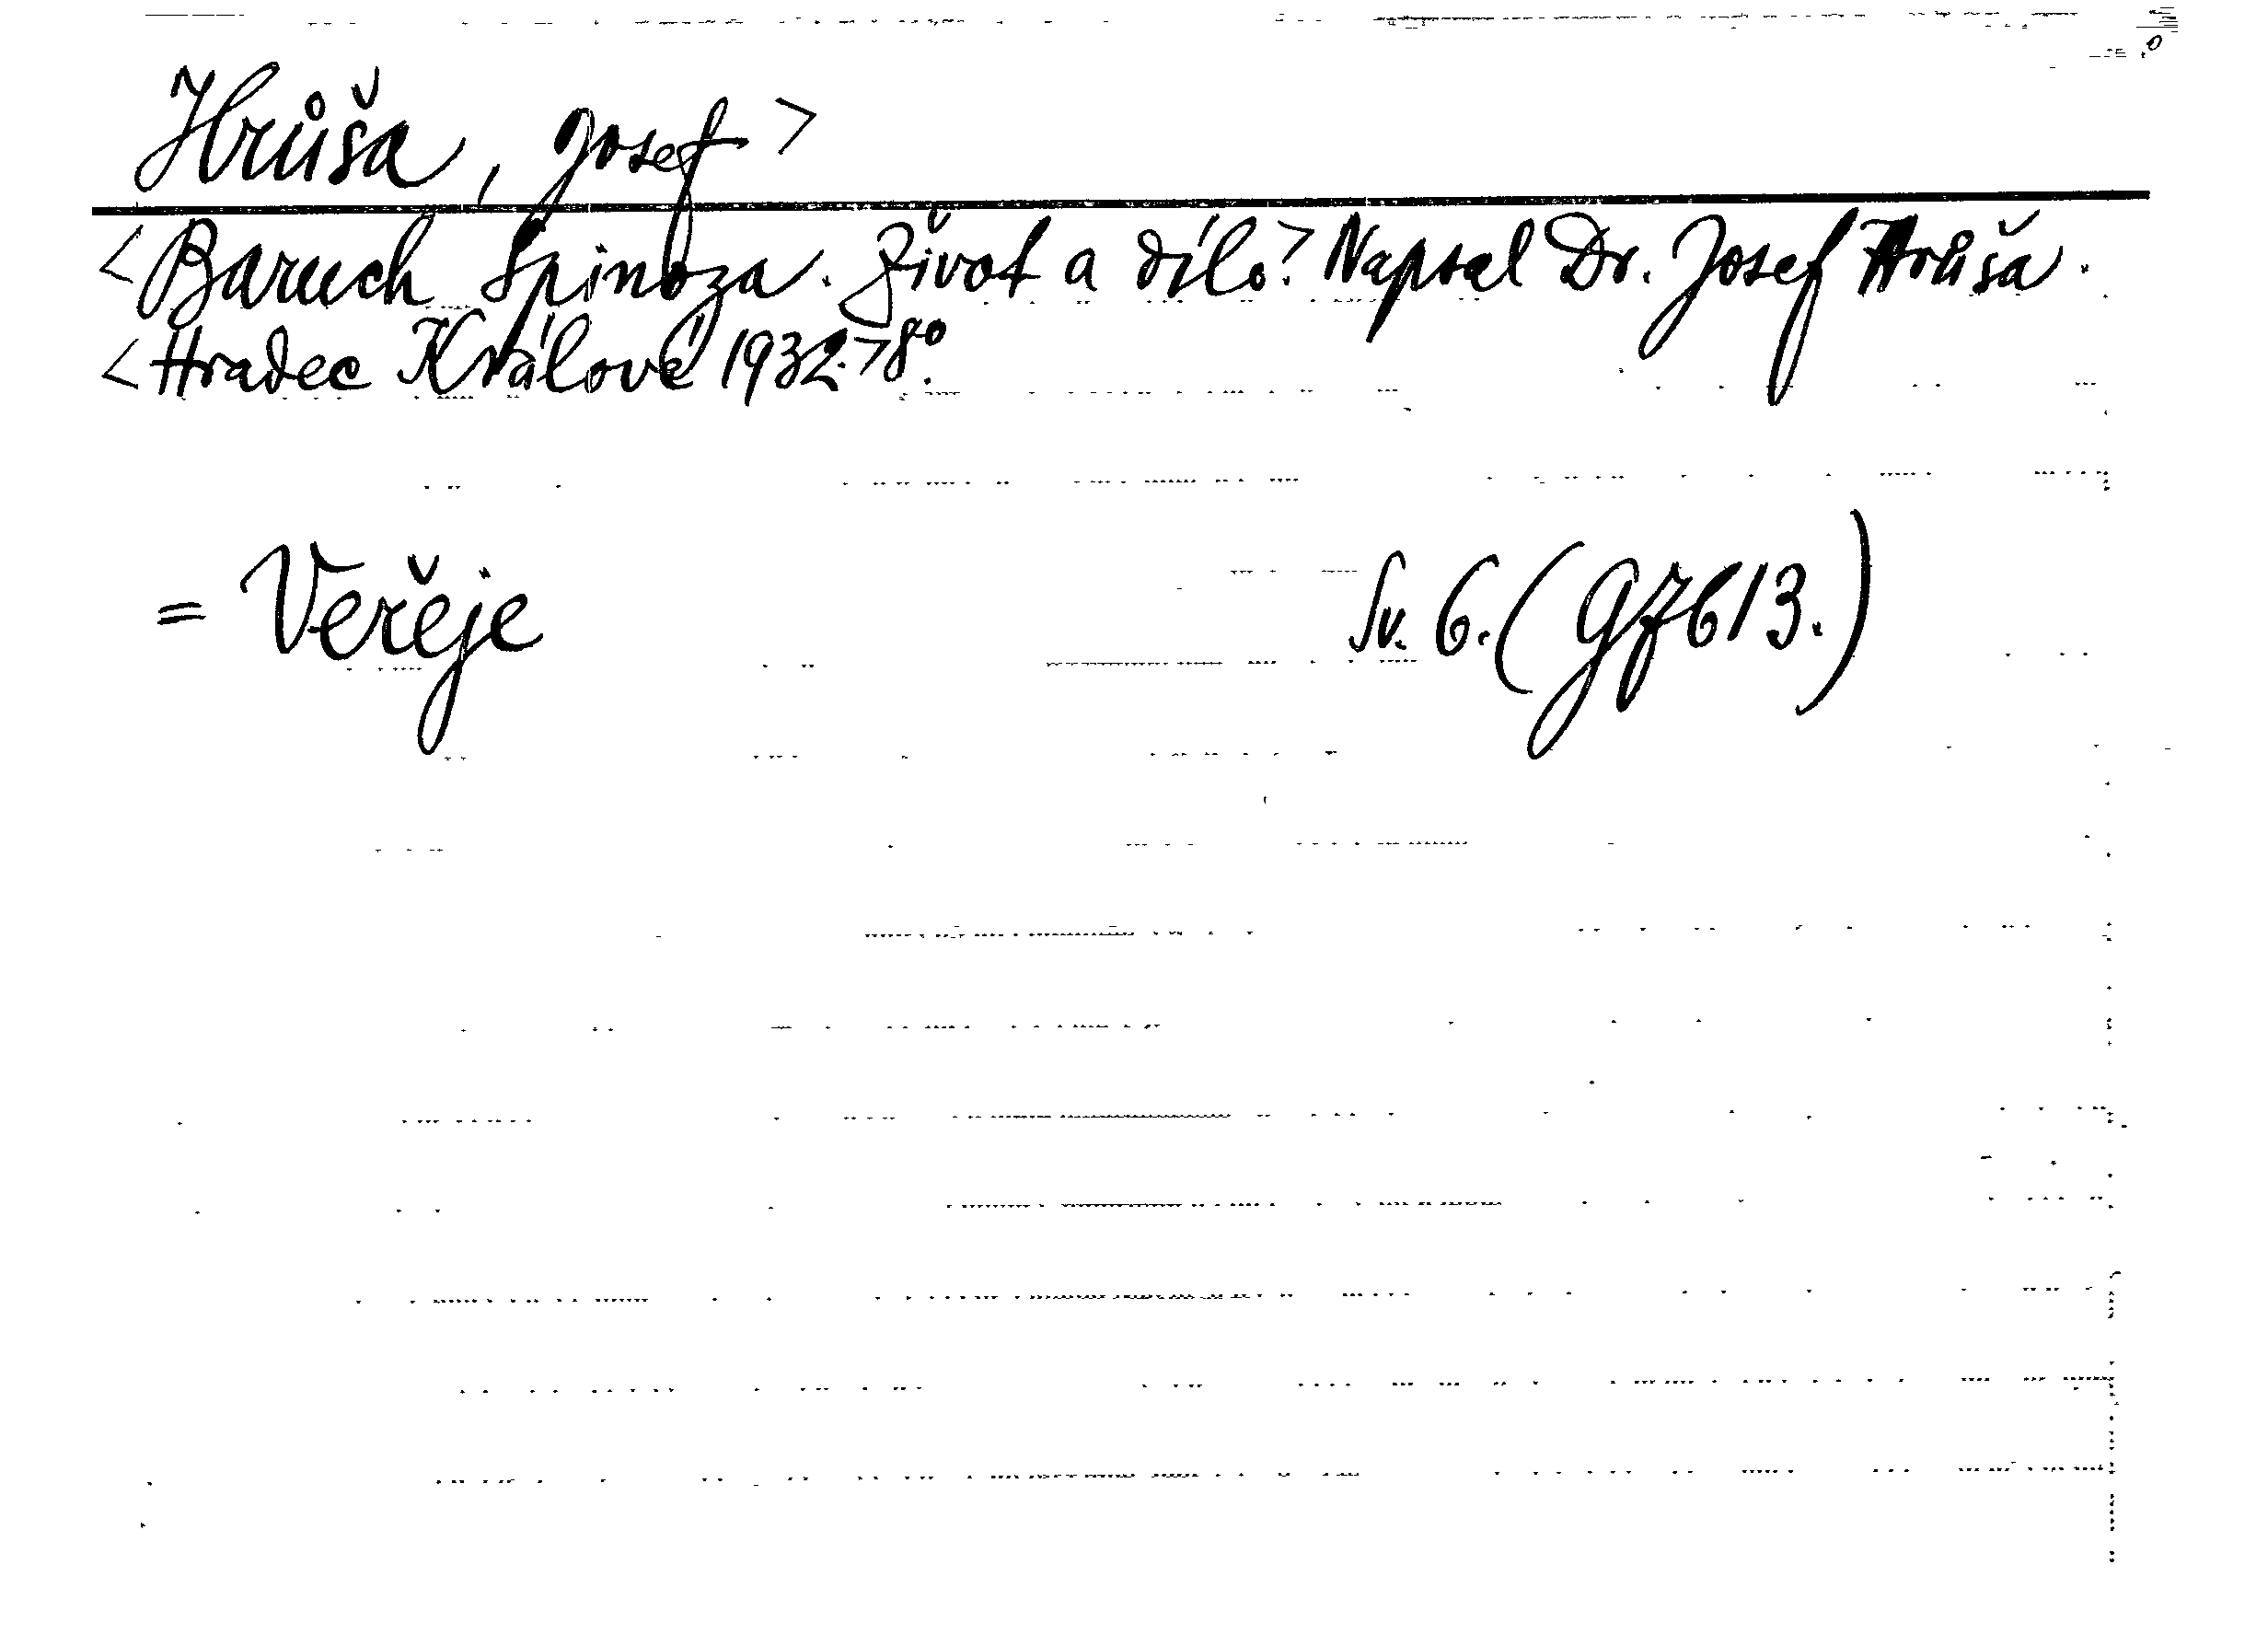 Hrůša, Josef >
< Baruch Spinoza. Život a dílo.> Napsal Dr. Josef Hrůša.
< Hradec Králové 1932.> 8°.
= Veřeje Sv. 6. (9J613.)